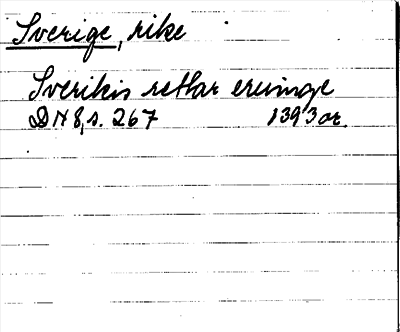 Sverige, rike
Sverikis rethar erwinge
DN 8, s. 267 1393 or.